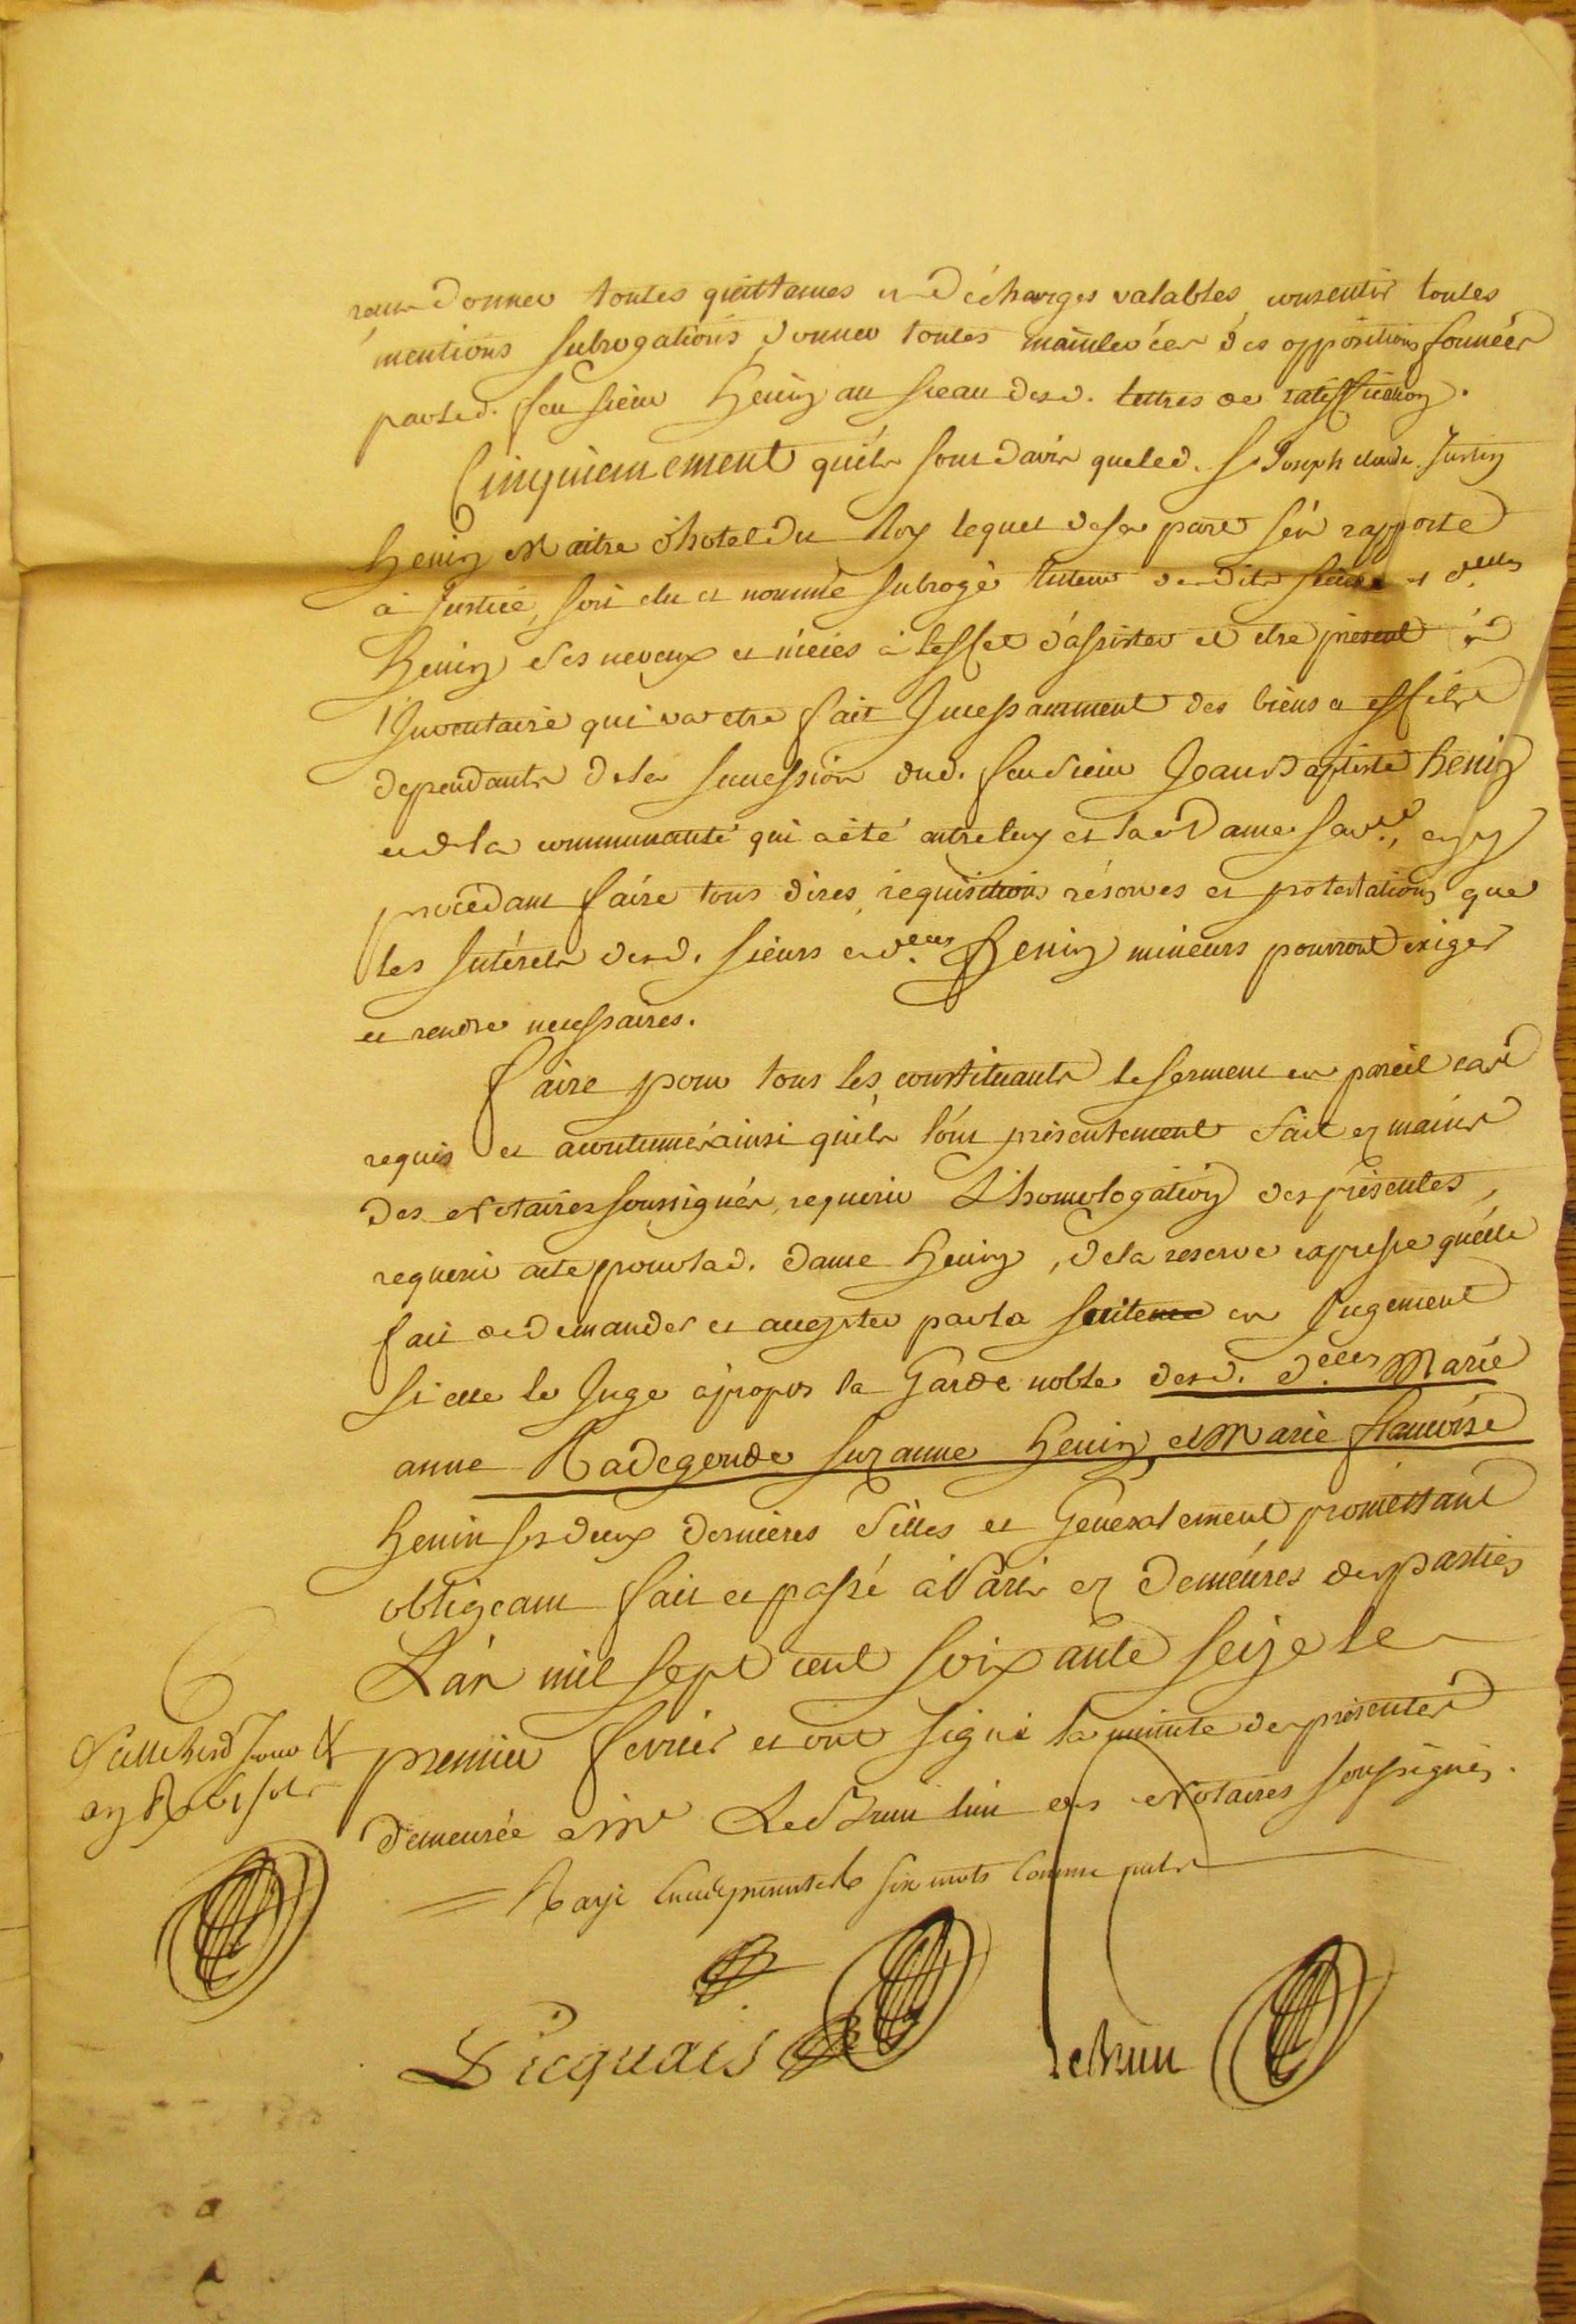 donner toutes quittances et décharges valables consentir toutes
mentions subrogations, donner toutes mainlevées des oppositions formées
parled. feu sieur henin au sceau desd. lettres de ratiffication.
Cinquiemement qu'ils sont davis queled. S. Joseph claude Justin
henin Maitre d'hotel du Roy lequel desa part s'en rapporte
à Justice, soit elu et nommé subrogé tuteur desdits sieurs et d.elles
henin ses neveux et niéces à leffet d'assister et etre présent à
l'Inventaire qui va etre fait Incessamment des biens et effets
dependants dela succession dud. feu sieur Jean Baptiste henin
et dela communauté qui a été entre luy et lad Dame sa v.ve, en y
procédant faire tous dires, requisitions réserves et protestations que
les Intérets desd. sieurs et d.elles henin mineurs pourront exiger
et rendre necessaires.
faire pour tous les constituants le serment en pareil cas
requis et accoutumé ainsi qu'ils l'ont présentement fait ez mains
des Notaires soussignés, requerir L'homologation des présentes,
requerir acte pour lad. dame henin, dela reserve expresse qu'elle
fait de demander et accepter par la suite en Jugement
si elle le Juge àpropos la Garde noble desd. d.elles Marie
anne Radegonde suzanne henin, et Marie françoise
henin ses deux dernières filles et Généralement promettant
obligeant fait et passé à Paris ez demeures des parties
L'an mil sept cent soixante seize le
premier fevrier et ont signé la minute des présentes
demeurée à Me LeBrun l'un des Notaires soussignés.
Rayé six mots comme nuls
Picquais
lebrun